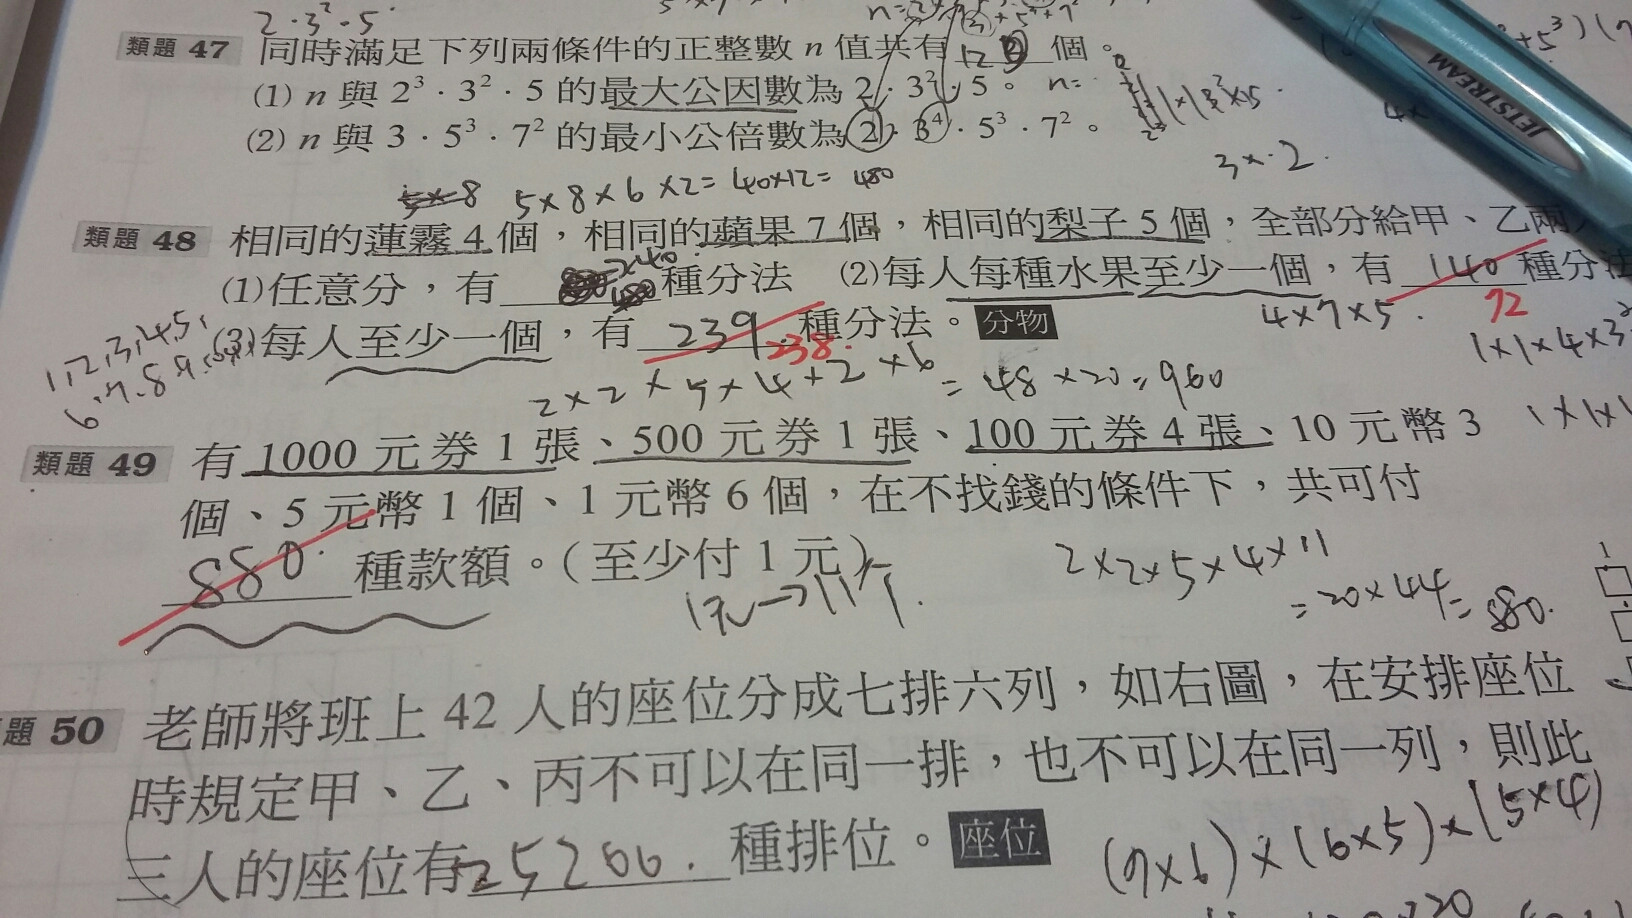 2・3²・5
類題 47 同時滿足下列兩條件的正整數 n 值共有 12 個。
(1) n 與 2³・3²・5 的最大公因數為 2・3²・5。 n=
(2) n 與 3・5³・7² 的最小公倍數為 2・3⁴・5³・7²。
JETSTREAM
3×・2
5×8 5×8×6×2=40×12=480
類題 48 相同的蓮霧 4 個，相同的蘋果 7 個，相同的梨子 5 個，全部分給甲、乙兩
(1)任意分，有 種分法 (2)每人每種水果至少一個，有 140 種分法
4×7×5. 72
1,2,3,4,5,
6,7,8,9
(3)每人至少一個，有 239 種分法。 分物
238.
2×2×5×4+2×6=48×20=960
1×1×4×3²
類題 49 有 1000 元券 1 張、500 元券 1 張、100 元券 4 張、10 元幣 3
1×1×1
個、5 元幣 1 個、1 元幣 6 個，在不找錢的條件下，共可付
880. 種款額。(至少付 1 元)
1元→11個.
2×2×5×4×11
=20×44=880.
題 50 老師將班上 42 人的座位分成七排六列，如右圖，在安排座位
時規定甲、乙、丙不可以在同一排，也不可以在同一列，則此
三人的座位有 25200. 種排位。 座位
(7×6)×(6×5)×(5×4)